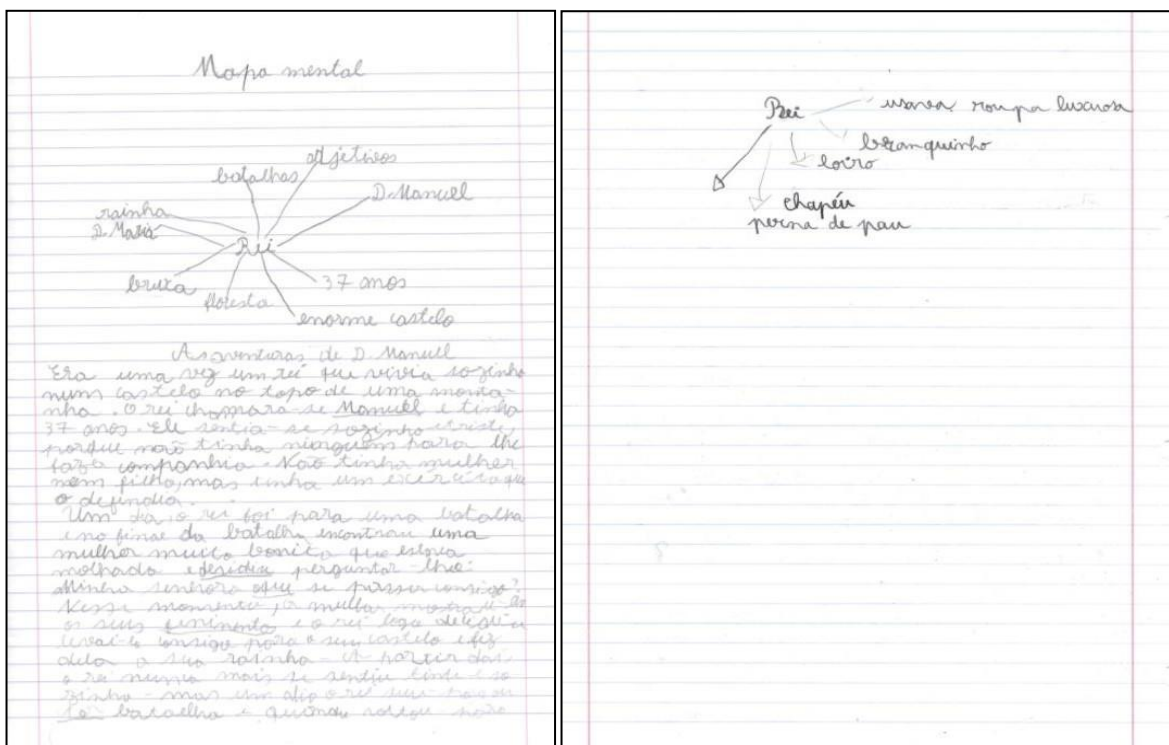 Mapa mental
adjetivos
batalhas
D. Manuel
rainha
D. Maria
Rei
bruxa
37 anos
floresta
enorme castelo
As aventuras de D. Manuel
Era uma vez um rei que vivia sozinho
num castelo no topo de uma monta-
nha. O rei chamava-se Manuel e tinha
37 anos. Ele sentia-se sozinho e triste,
porque não tinha ninguém para lhe
fazer companhia. Não tinha mulher
nem filho, mas tinha um exército que
o defendia.
Um dia o rei foi para uma batalha
e no final da batalha encontrou uma
mulher muito bonita que estava
molhada e desidiu perguntar-lhe:
Minha senhora que se passa consigo?
Nesse momento, a mulher
os seus e o rei logo
consigo para o seu castelo e fez
dela a sua rainha. A partir daí,
o rei nunca mais se sentiu e so
zinho - mas um dia o rei
batalha e quando
Rei
usava roupa luxuosa
branquinho
loiro
chapéu
perna de pau